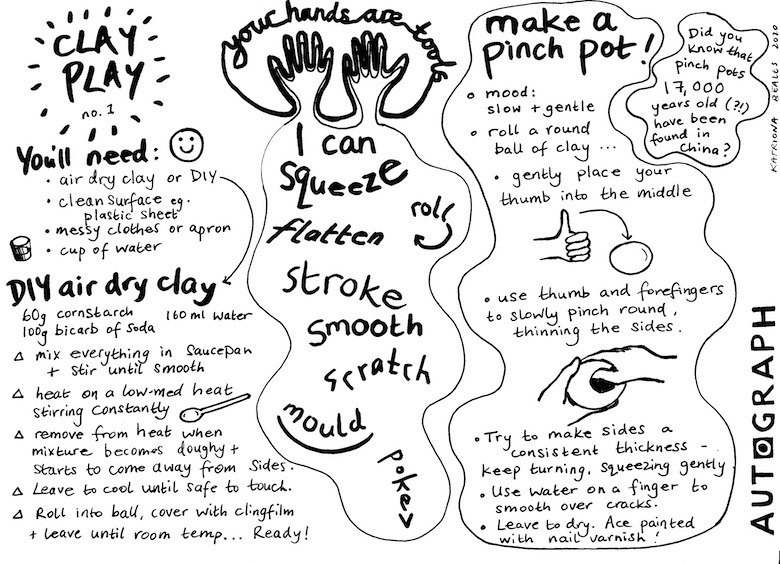 CLAY
PLAY
no. 1
You'll need:
• air dry clay or DIY
• clean surface eg.
plastic sheet
• messy clothes or apron
• cup of water
DIY air dry clay
60g cornstarch 160ml water
100g bicarb of soda
△ mix everything in saucepan
+ stir until smooth
△ heat on a low-med heat
stirring constantly
△ remove from heat when
mixture becomes doughy +
starts to come away from sides.
△ Leave to cool until safe to touch.
△ Roll into ball, cover with clingfilm
+ leave until room temp... Ready!
your hands are tools
I can
squeeze
roll
flatten
stroke
smooth
scratch
mould
poke
make a
pinch pot!
• mood:
slow + gentle
• roll a round
ball of clay ...
• gently place your
thumb into the middle
• use thumb and forefingers
to slowly pinch round,
thinning the sides.
• Try to make sides a
consistent thickness -
keep turning, squeezing gently
• Use water on a finger to
smooth over cracks.
• Leave to dry. Ace painted
with nail varnish!
Did you
know that
pinch pots
17,000
years old (?!)
have been
found in
China?
KATRIONA BEALES 2020
AUTOGRAPH